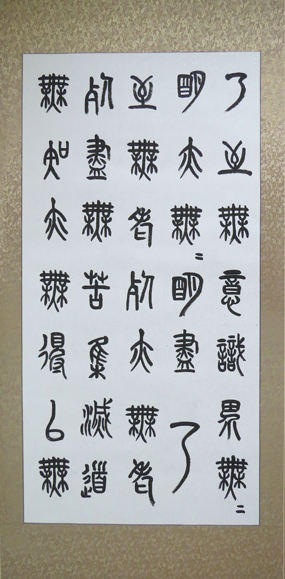 乃至無意識界無〻
明亦無〻明盡乃
至無老死亦無老
死盡無苦集滅道
無知亦無得以無